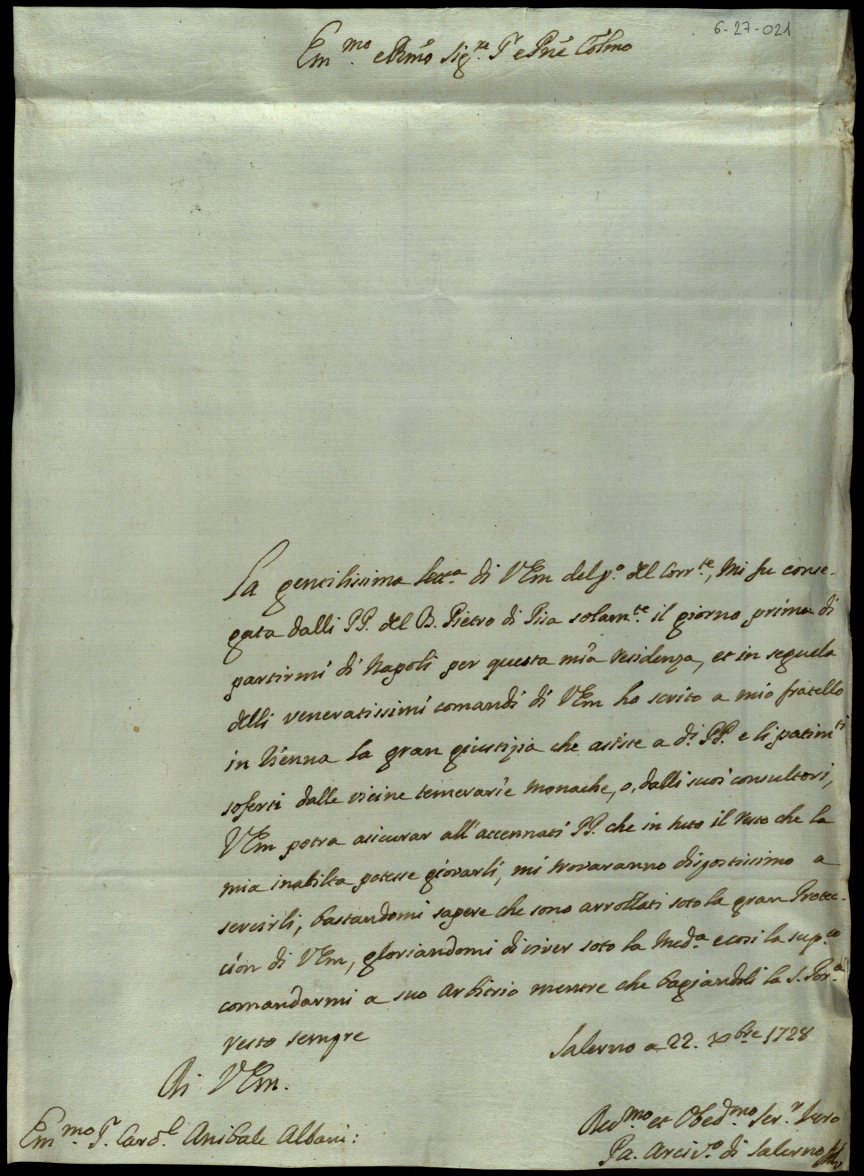 6-27-021
Em.mo e Rmo Sig.re P. e Pne Colmo
La gentilissima lett.a di VEm del p.o del Corr.te, Mi fu conse-
gata dalli PP. del B. Pietro di Pisa solam.te il giorno prima di
partirmi di Napoli per questa mia residenza, et in sequela
delli veneratissimi comandi di VEm ho scrito a mio fratello
in Vienna la gran giustizia che asiste a d.i PP. e li patim.ti
soferti dalle vicine temerarie Monache, o, dalli suoi consultori,
VEm potra asicurar all'accennati PP. che in tuto il resto che la
mia inabilta potesse giovarli, mi trovaranno dispostissimo a
servirli, bastandomi sapere che sono arrollati soto la gran Protec-
cion di VEm, gloriandomi di viver soto la Med.a e cosi la sup.co
comandarmi a suo arbitrio mentre che bagiandoli la S. Por.a
resto sempre
Salerno a 22. Xbre 1728
Di VEm.
Em.mo P. Card.l Anibale Albani:
Dev.mo et Obed.mo Ser.r Vero
Pa. Arciv.o di Salerno